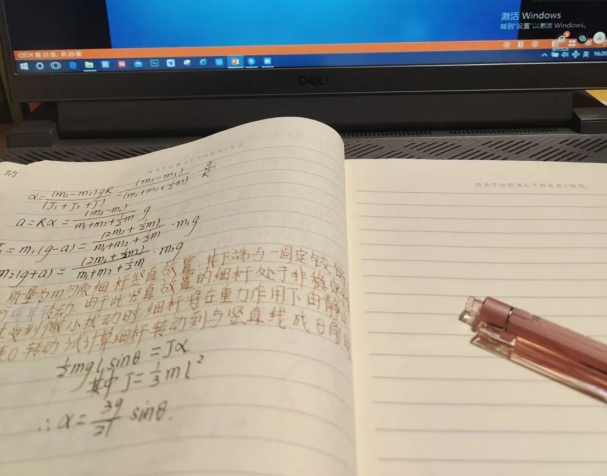 激活 Windows
转到"设置"以激活 Windows。
16:20
DELL
NATURALTHEKING
NATURALTHEKING
α = (m₂-m₁)gR / (J₁+J₂+J) = (m₂-m₁) / (m₁+m₂+½m) · g/R
a = Rα = (m₂-m₁) / (m₁+m₂+½m) g
= m₁(g-a) = (2m₂+½m) / (m₁+m₂+½m) · m₁g
m₂(g+a) = (2m₁+½m) / (m₁+m₂+½m) · m₂g
质量为m 的细杆竖直放置,其下端与一固定铰
转动 由于此竖直放置的细杆处于非稳定
受到微小扰动时,细杆将在重力作用下由静
O转动 试计算细杆转动到与竖直线成θ角
½mgl sinθ = Jα
其中 J = ⅓ml²
∴ α = 3g/2l sinθ.